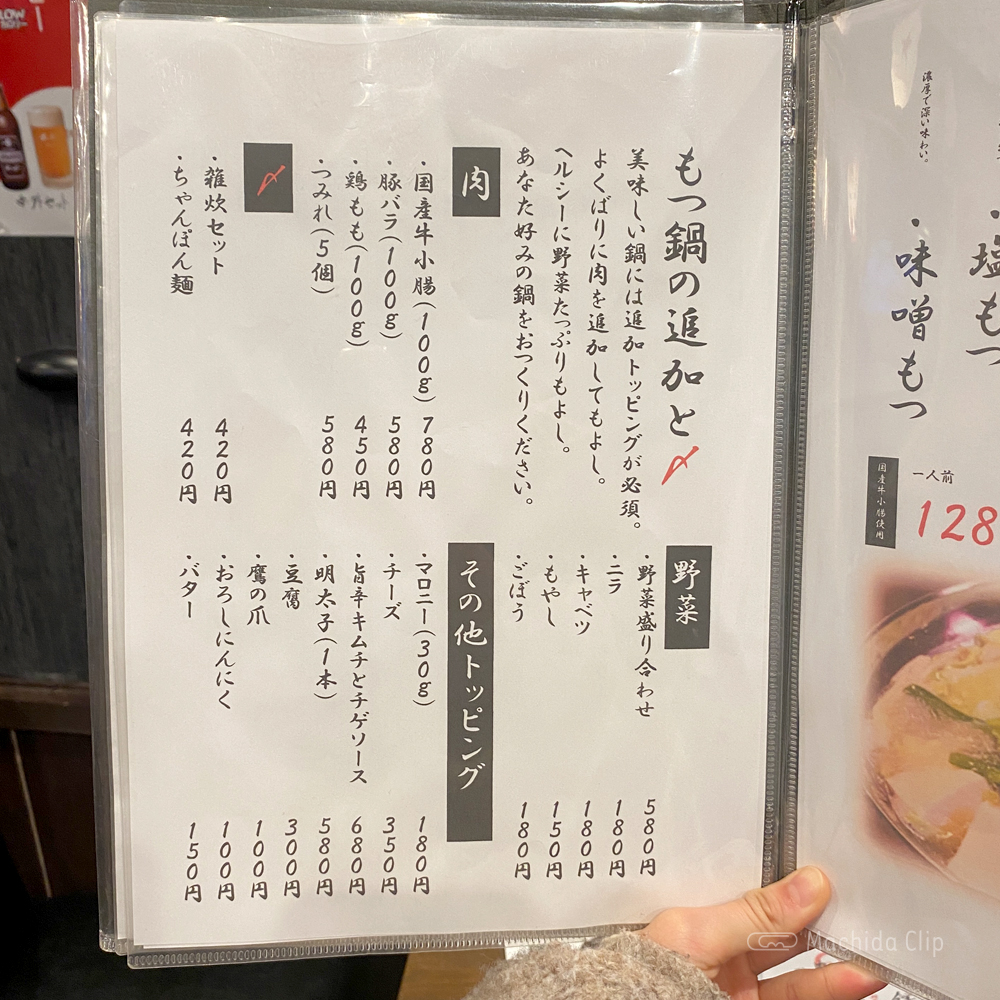 濃厚で深い味わい。
・塩もつ
・味噌もつ
国産牛小腸使用
一人前
128
もつ鍋の追加と〆
美味しい鍋には追加トッピングが必須。
よくばりに肉を追加してもよし。
ヘルシーに野菜たっぷりもよし。
あなた好みの鍋をおつくりください。
肉
・国産牛小腸(100g) 780円
・豚バラ(100g) 580円
・鶏もも(100g) 450円
・つみれ(5個) 580円
〆
・雑炊セット 420円
・ちゃんぽん麺 420円
野菜
・野菜盛り合わせ 580円
・ニラ 180円
・キャベツ 180円
・もやし 150円
・ごぼう 180円
その他トッピング
・マロニー(30g) 180円
・チーズ 350円
・旨辛キムチとチゲソース 680円
・明太子(1本) 580円
・豆腐 300円
・鷹の爪 100円
・おろしにんにく 100円
・バター 150円
Machida Clip